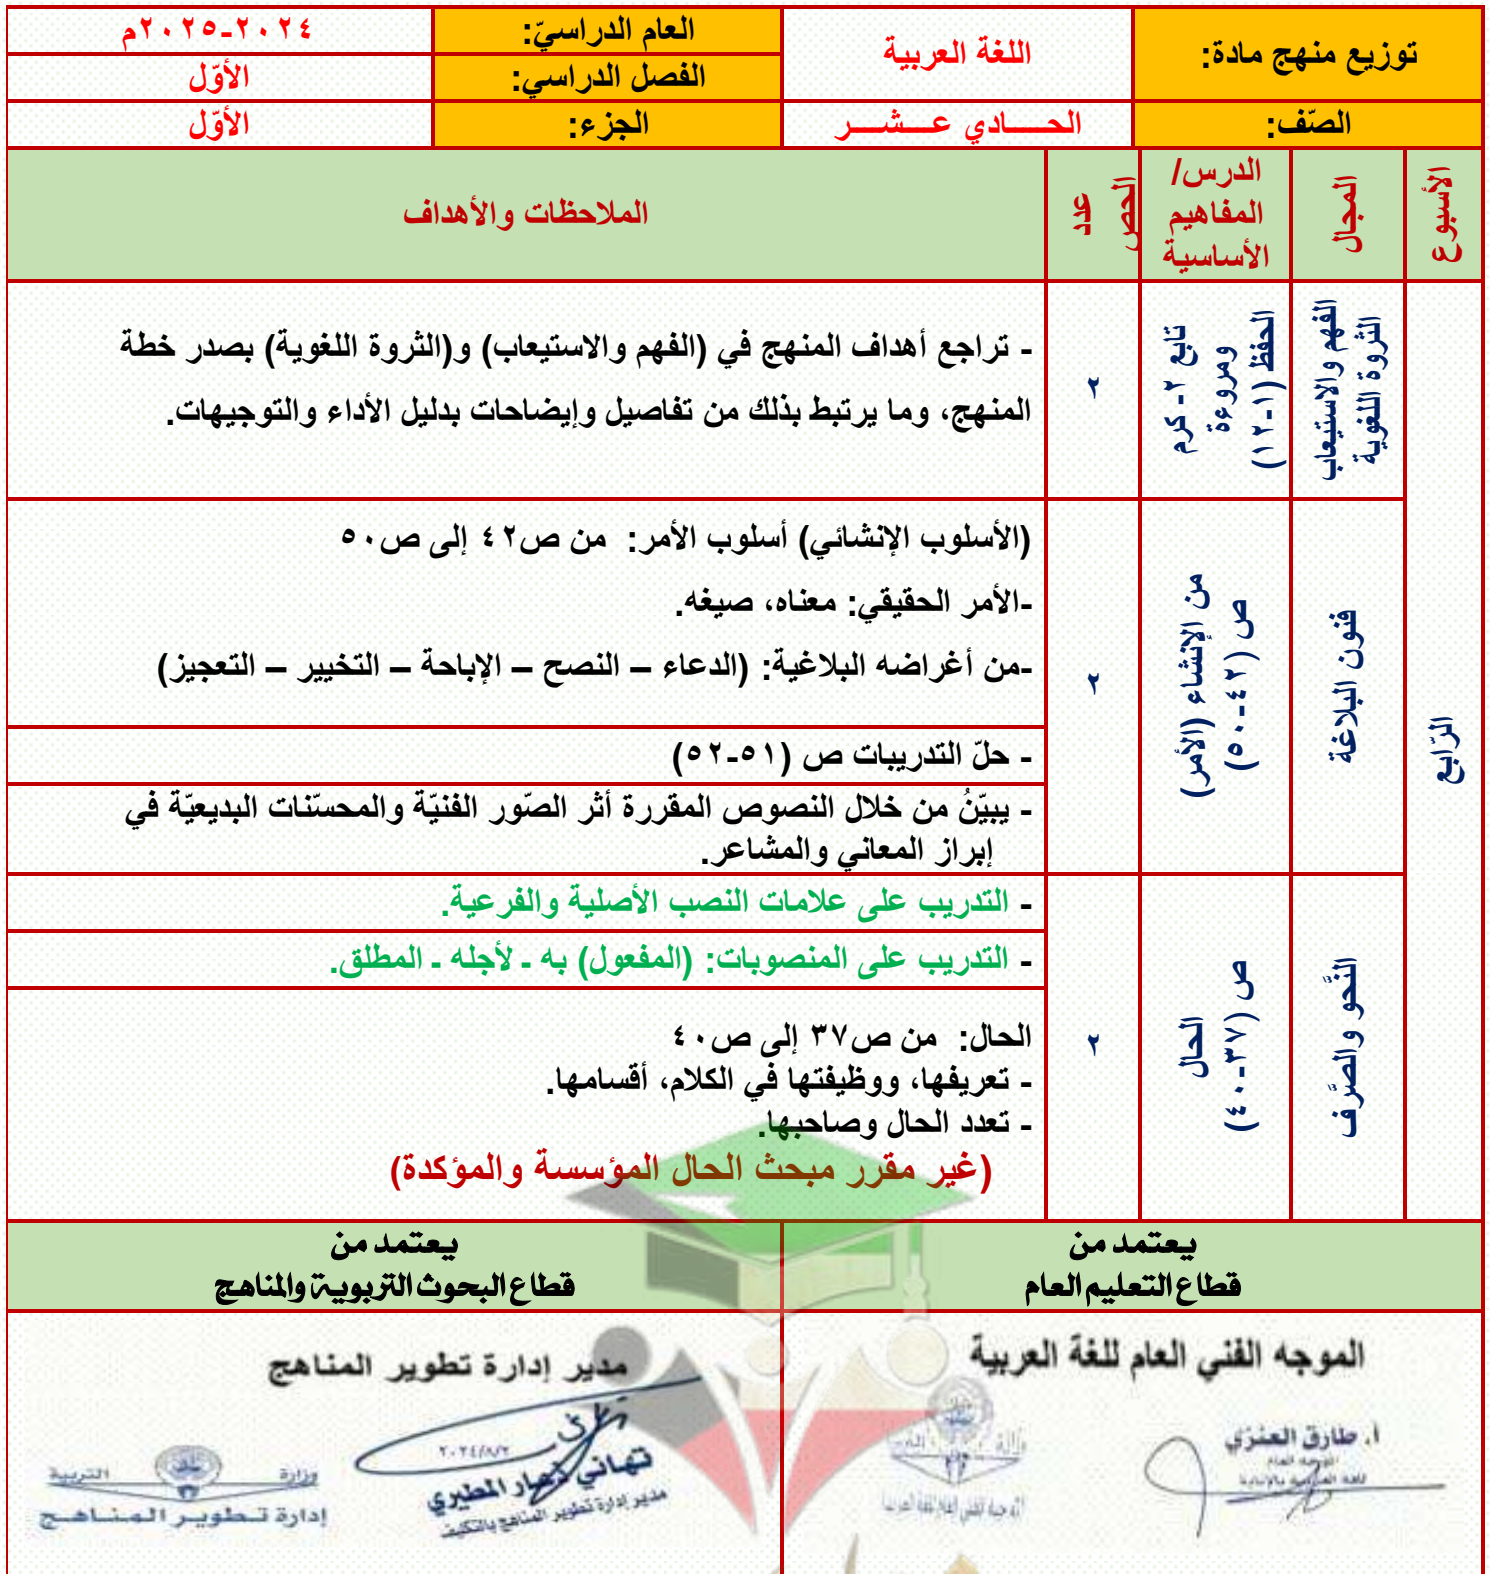 توزيع منهج مادة:
اللغة العربية
العام الدراسيّ:
٢٠٢٤-٢٠٢٥م
الفصل الدراسي:
الأوّل
الصّف:
الحـــــادي عـــشــــر
الجزء:
الأوّل
الأسبوع
المجال
الدرس/
المفاهيم
الأساسية
عدد
الحصص
الملاحظات والأهداف
الرّابع
الفهم والاستيعاب
الثروة اللغوية
تابع ٢- كرم
ومروءة
الحفظ (١-١٢)
٢
- تراجع أهداف المنهج في (الفهم والاستيعاب) و(الثروة اللغوية) بصدر خطة
المنهج، وما يرتبط بذلك من تفاصيل وإيضاحات بدليل الأداء والتوجيهات.
فنون البلاغة
من الإنشاء (الأمر)
ص (٤٢-٥٠)
٢
(الأسلوب الإنشائي) أسلوب الأمر: من ص٤٢ إلى ص٥٠
-الأمر الحقيقي: معناه، صيغه.
-من أغراضه البلاغية: (الدعاء – النصح – الإباحة – التخيير – التعجيز)
- حلّ التدريبات ص (٥١-٥٢)
- يبيّنُ من خلال النصوص المقررة أثر الصّور الفنيّة والمحسّنات البديعيّة في
إبراز المعاني والمشاعر.
النَّحو والصَّرف
الحال
ص (٣٧-٤٠)
٢
- التدريب على علامات النصب الأصلية والفرعية.
- التدريب على المنصوبات: (المفعول) به ـ لأجله ـ المطلق.
الحال: من ص٣٧ إلى ص٤٠
- تعريفها، ووظيفتها في الكلام، أقسامها.
- تعدد الحال وصاحبها.
(غير مقرر مبحث الحال المؤسسة والمؤكدة)
يعتمد من
قطاع التعليم العام
يعتمد من
قطاع البحوث التربوية والمناهج
الموجه الفني العام للغة العربية
أ. طارق العنزي
مدير إدارة تطوير المناهج
٢٠٢٤/٨/٢
تهاني ذعار المطيري
مدير إدارة تطوير المناهج بالتكليف
وزارة التربية
إدارة تـطويـر المـنـاهـج